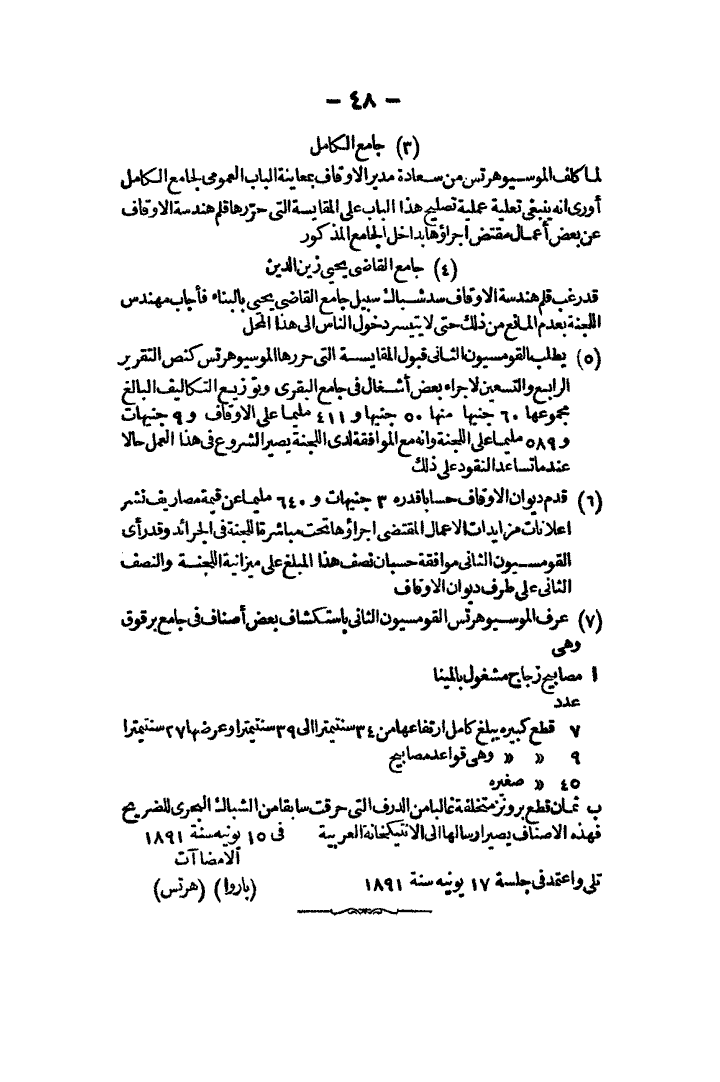 – ٤٨ –
(٣) جامع الكامل
لما كلف الموسيو هرتس من سعادة مدير الاوقاف بمعاينة الباب العمومى لجامع الكامل
أورى انه ينبغى تعلية عملية تصليح هذا الباب على المقايسة التى حررها قلم هندسة الاوقاف
عن بعض أعمال مقتض اجراؤها بداخل الجامع المذكور
(٤) جامع القاضى يحيى زين الدين
قد رغب قلم هندسة الاوقاف سد شباك سبيل جامع القاضى يحيى بالبناء فأجاب مهندس
اللجنة بعدم المانع من ذلك حتى لا يتيسر دخول الناس الى هذا المحل
(٥) يطلب القومسيون الثانى قبول المقايسة التى حررها الموسيو هرتس كنص التقرير
الرابع والتسعين لاجراء بعض أشغال فى جامع البقرى وتوزيع التكاليف البالغ
مجموعها ٦٠ جنيها منها ٥٠ جنيها و ٤١١ مليما على الاوقاف و ٩ جنيهات
و ٥٨٩ مليما على اللجنة وانه مع الموافقة لدى اللجنة يصير الشروع فى هذا العمل حالا
عندما تساعد النقود على ذلك
(٦) قدم ديوان الاوقاف حسابا قدره ٣ جنيهات و ٦٤٠ مليما عن قيمة مصاريف نشر
اعلانات مزايدات الاعمال المقتضى اجراؤها تحت مباشرة اللجنة فى الجرائد وقد رأى
القومسيون الثانى موافقة حسبان نصف هذا المبلغ على ميزانية اللجنة والنصف
الثانى على طرف ديوان الاوقاف
(٧) عرف الموسيو هرتس القومسيون الثانى باستكشاف بعض أصناف فى جامع برقوق
وهى
ا مصابيح زجاج مشغول بالمينا
عدد
٧ قطع كبيره يبلغ كامل ارتفاعها من ٣٤ سنتيمترا الى ٣٩ سنتيمترا وعرضها ٢٧ سنتيمترا
٩ « « وهى قواعد مصابيح
٤٥ « صغيره
ب ثمان قطع برونز متخلفة غالبا من الدرف التى حرقت سابقا من الشباك البحرى للضريح
فهذه الاصناف يصير ارسالها الى الانتيكخانة العربية فى ١٥ يونيه سنة ١٨٩١
الامضاآت
تلى واعتمد فى جلسة ١٧ يونيه سنة ١٨٩١ (باروا) (هرتس)